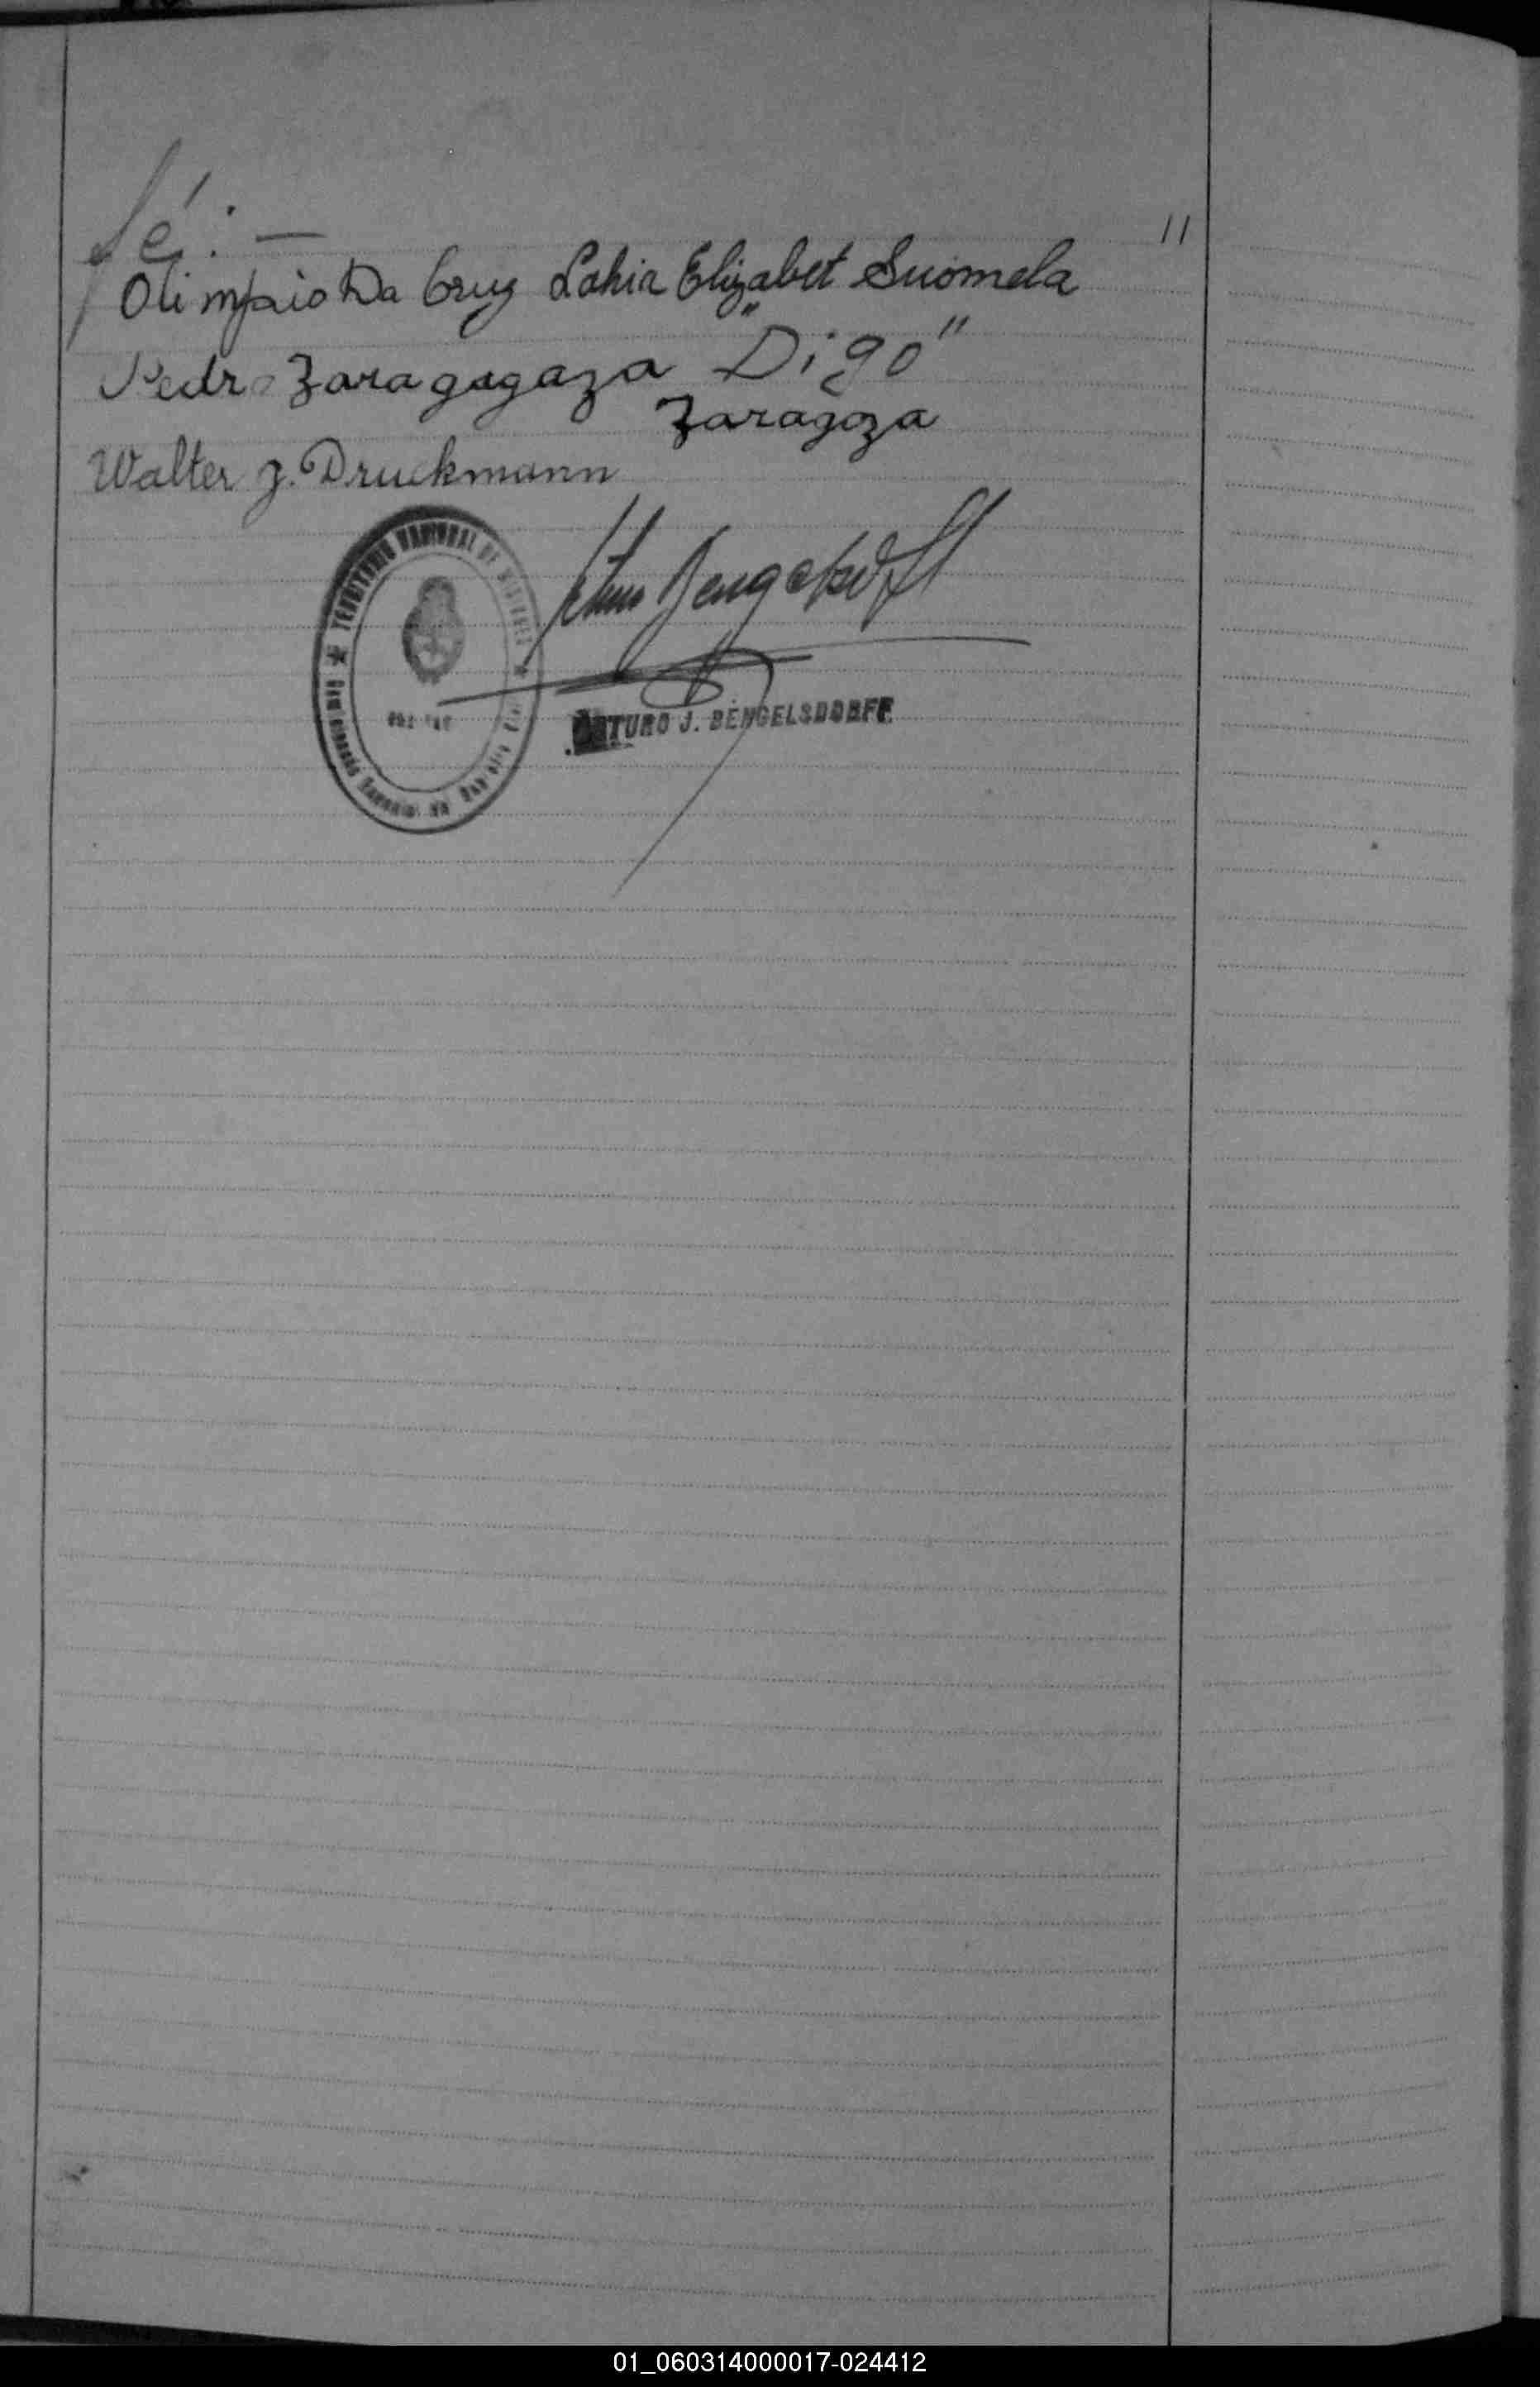 fé: —
11
Olimpio Da Cruz Lahia Elizabet Suomela
Pedro Zaragagaza "Digo"
Zaragoza
Walter J. Druckmann
TERRITORIO NACIONAL DE MISIONES
ARTURO J. BENGELSDORFF
01_060314000017-024412